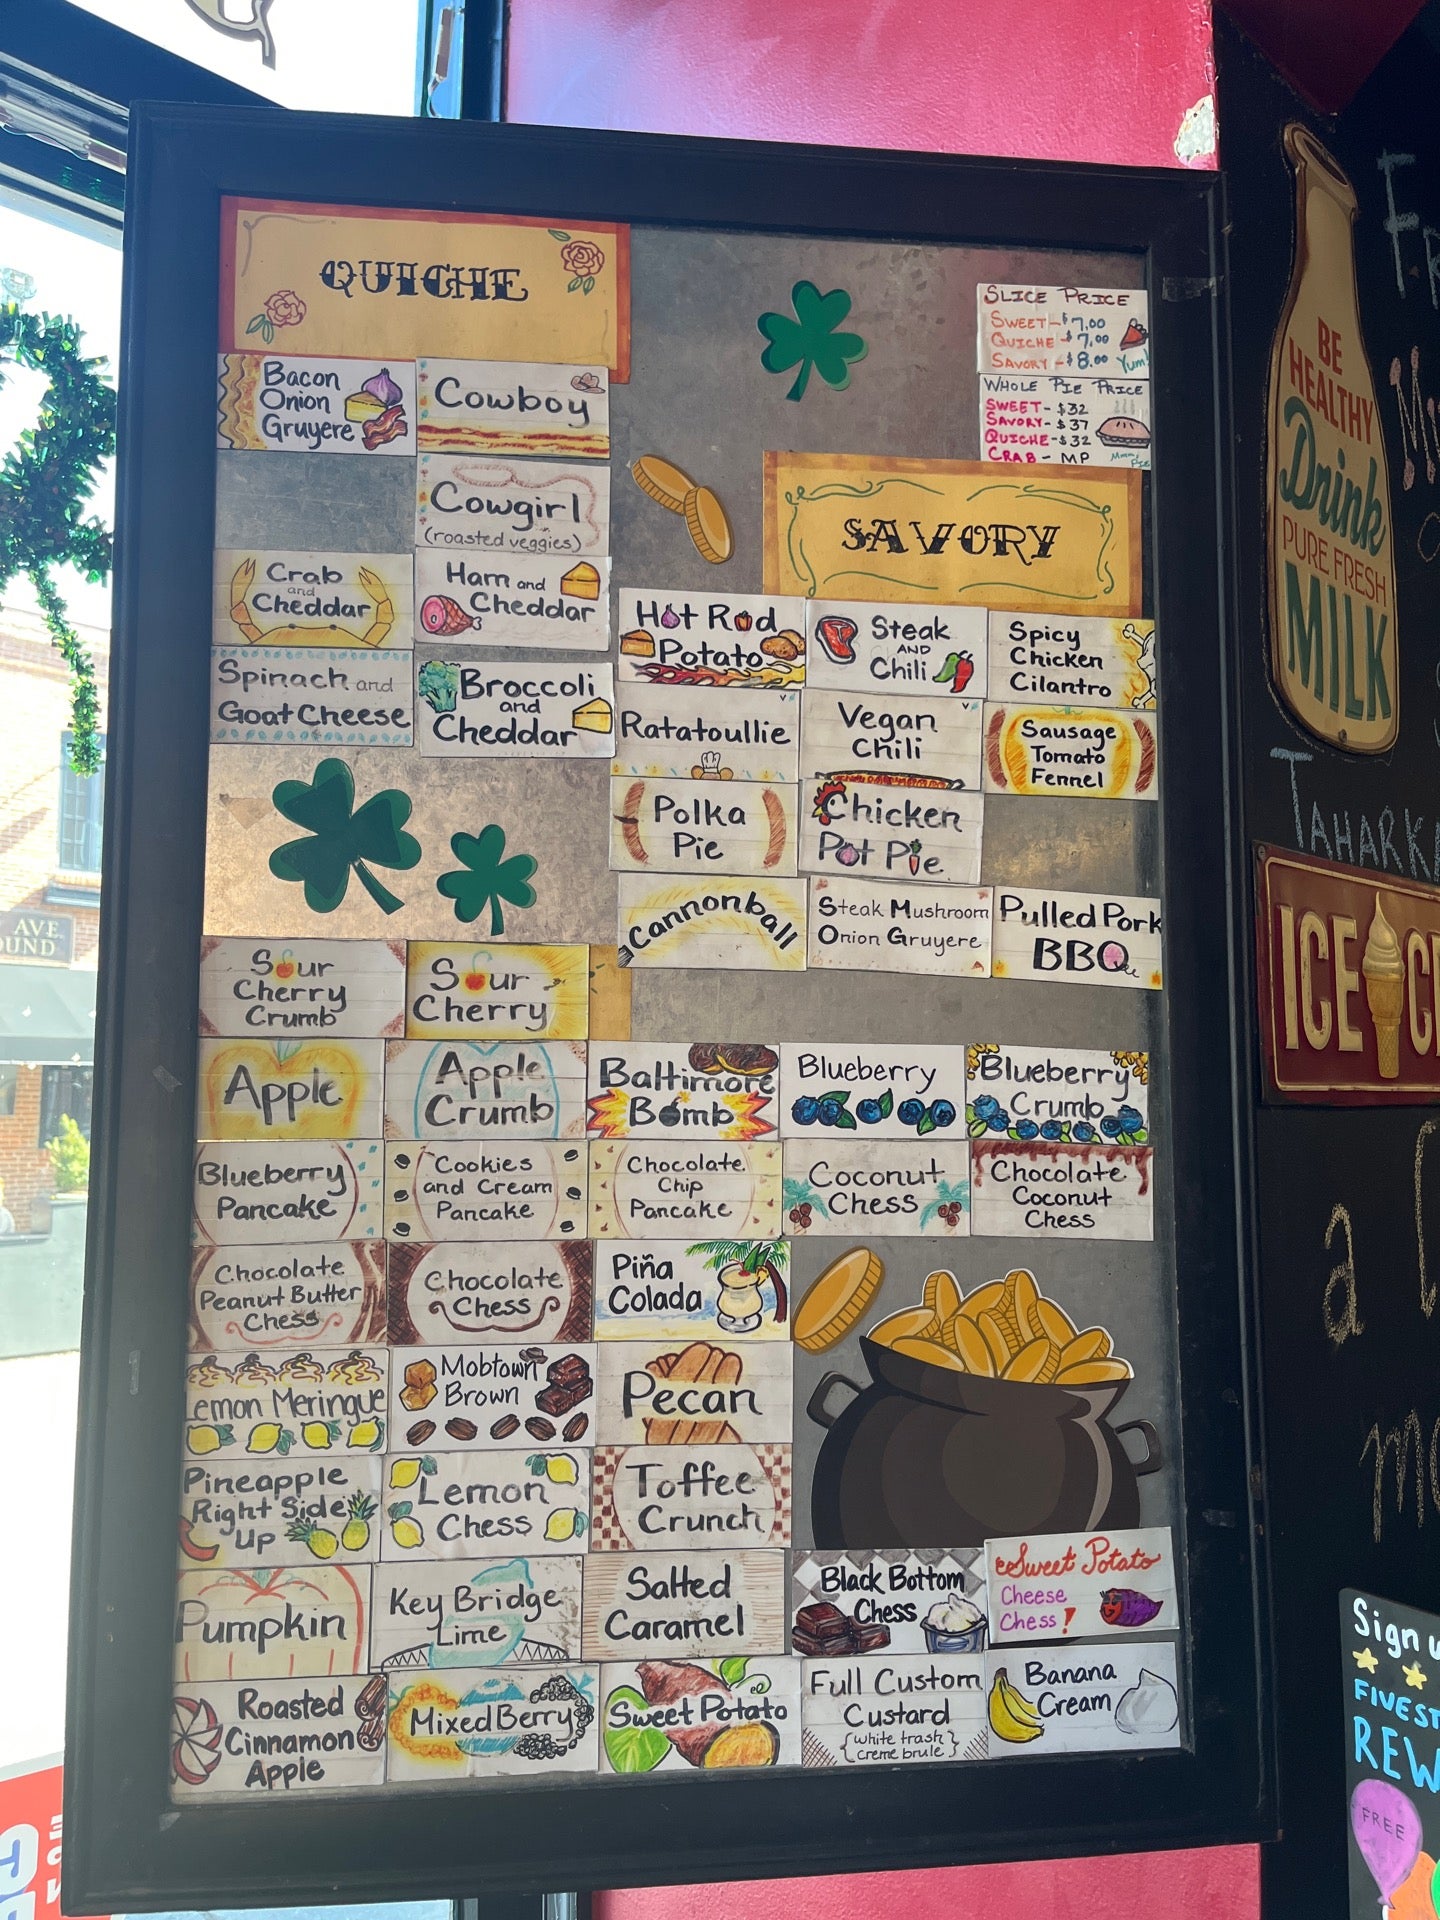 QUICHE
SLICE PRICE
SWEET-$7.00
QUICHE-$7.00
SAVORY-$8.00 Yum!
WHOLE PIE PRICE
SWEET-$32
SAVORY-$37
QUICHE-$32
CRAB- MP
Mmm, Pie
Bacon
Onion
Gruyere
Cowboy
Cowgirl
(roasted veggies)
Crab
and
Cheddar
Ham and
Cheddar
Spinach and
Goat Cheese
Broccoli
and
Cheddar
SAVORY
Hot Rod
Potato
Steak
AND
Chili
Spicy
Chicken
Cilantro
Ratatoullie
Vegan
Chili
Sausage
Tomato
Fennel
Polka
Pie
Chicken
Pot Pie
Cannonball
Steak Mushroom
Onion Gruyere
Pulled Pork
BBQ
Sour
Cherry
Crumb
Sour
Cherry
Apple
Apple
Crumb
Baltimore
Bomb
Blueberry
Blueberry
Crumb
Blueberry
Pancake
Cookies
and Cream
Pancake
Chocolate
Chip
Pancake
Coconut
Chess
Chocolate
Coconut
Chess
Chocolate
Peanut Butter
Chess
Chocolate
Chess
Piña
Colada
Lemon Meringue
Mobtown
Brown
Pecan
Pineapple
Right Side
Up
Lemon
Chess
Toffee
Crunch
Pumpkin
Key Bridge
Lime
Salted
Caramel
Black Bottom
Chess
Sweet Potato
Cheese
Chess!
Roasted
Cinnamon
Apple
Mixed Berry
Sweet Potato
Full Custom
Custard
{white trash}
{creme brule}
Banana
Cream
BE
HEALTHY
Drink
PURE FRESH
MILK
TAHARK
ICE C
a
Sign u
FIVEST
REW
FREE
AVE
OUND